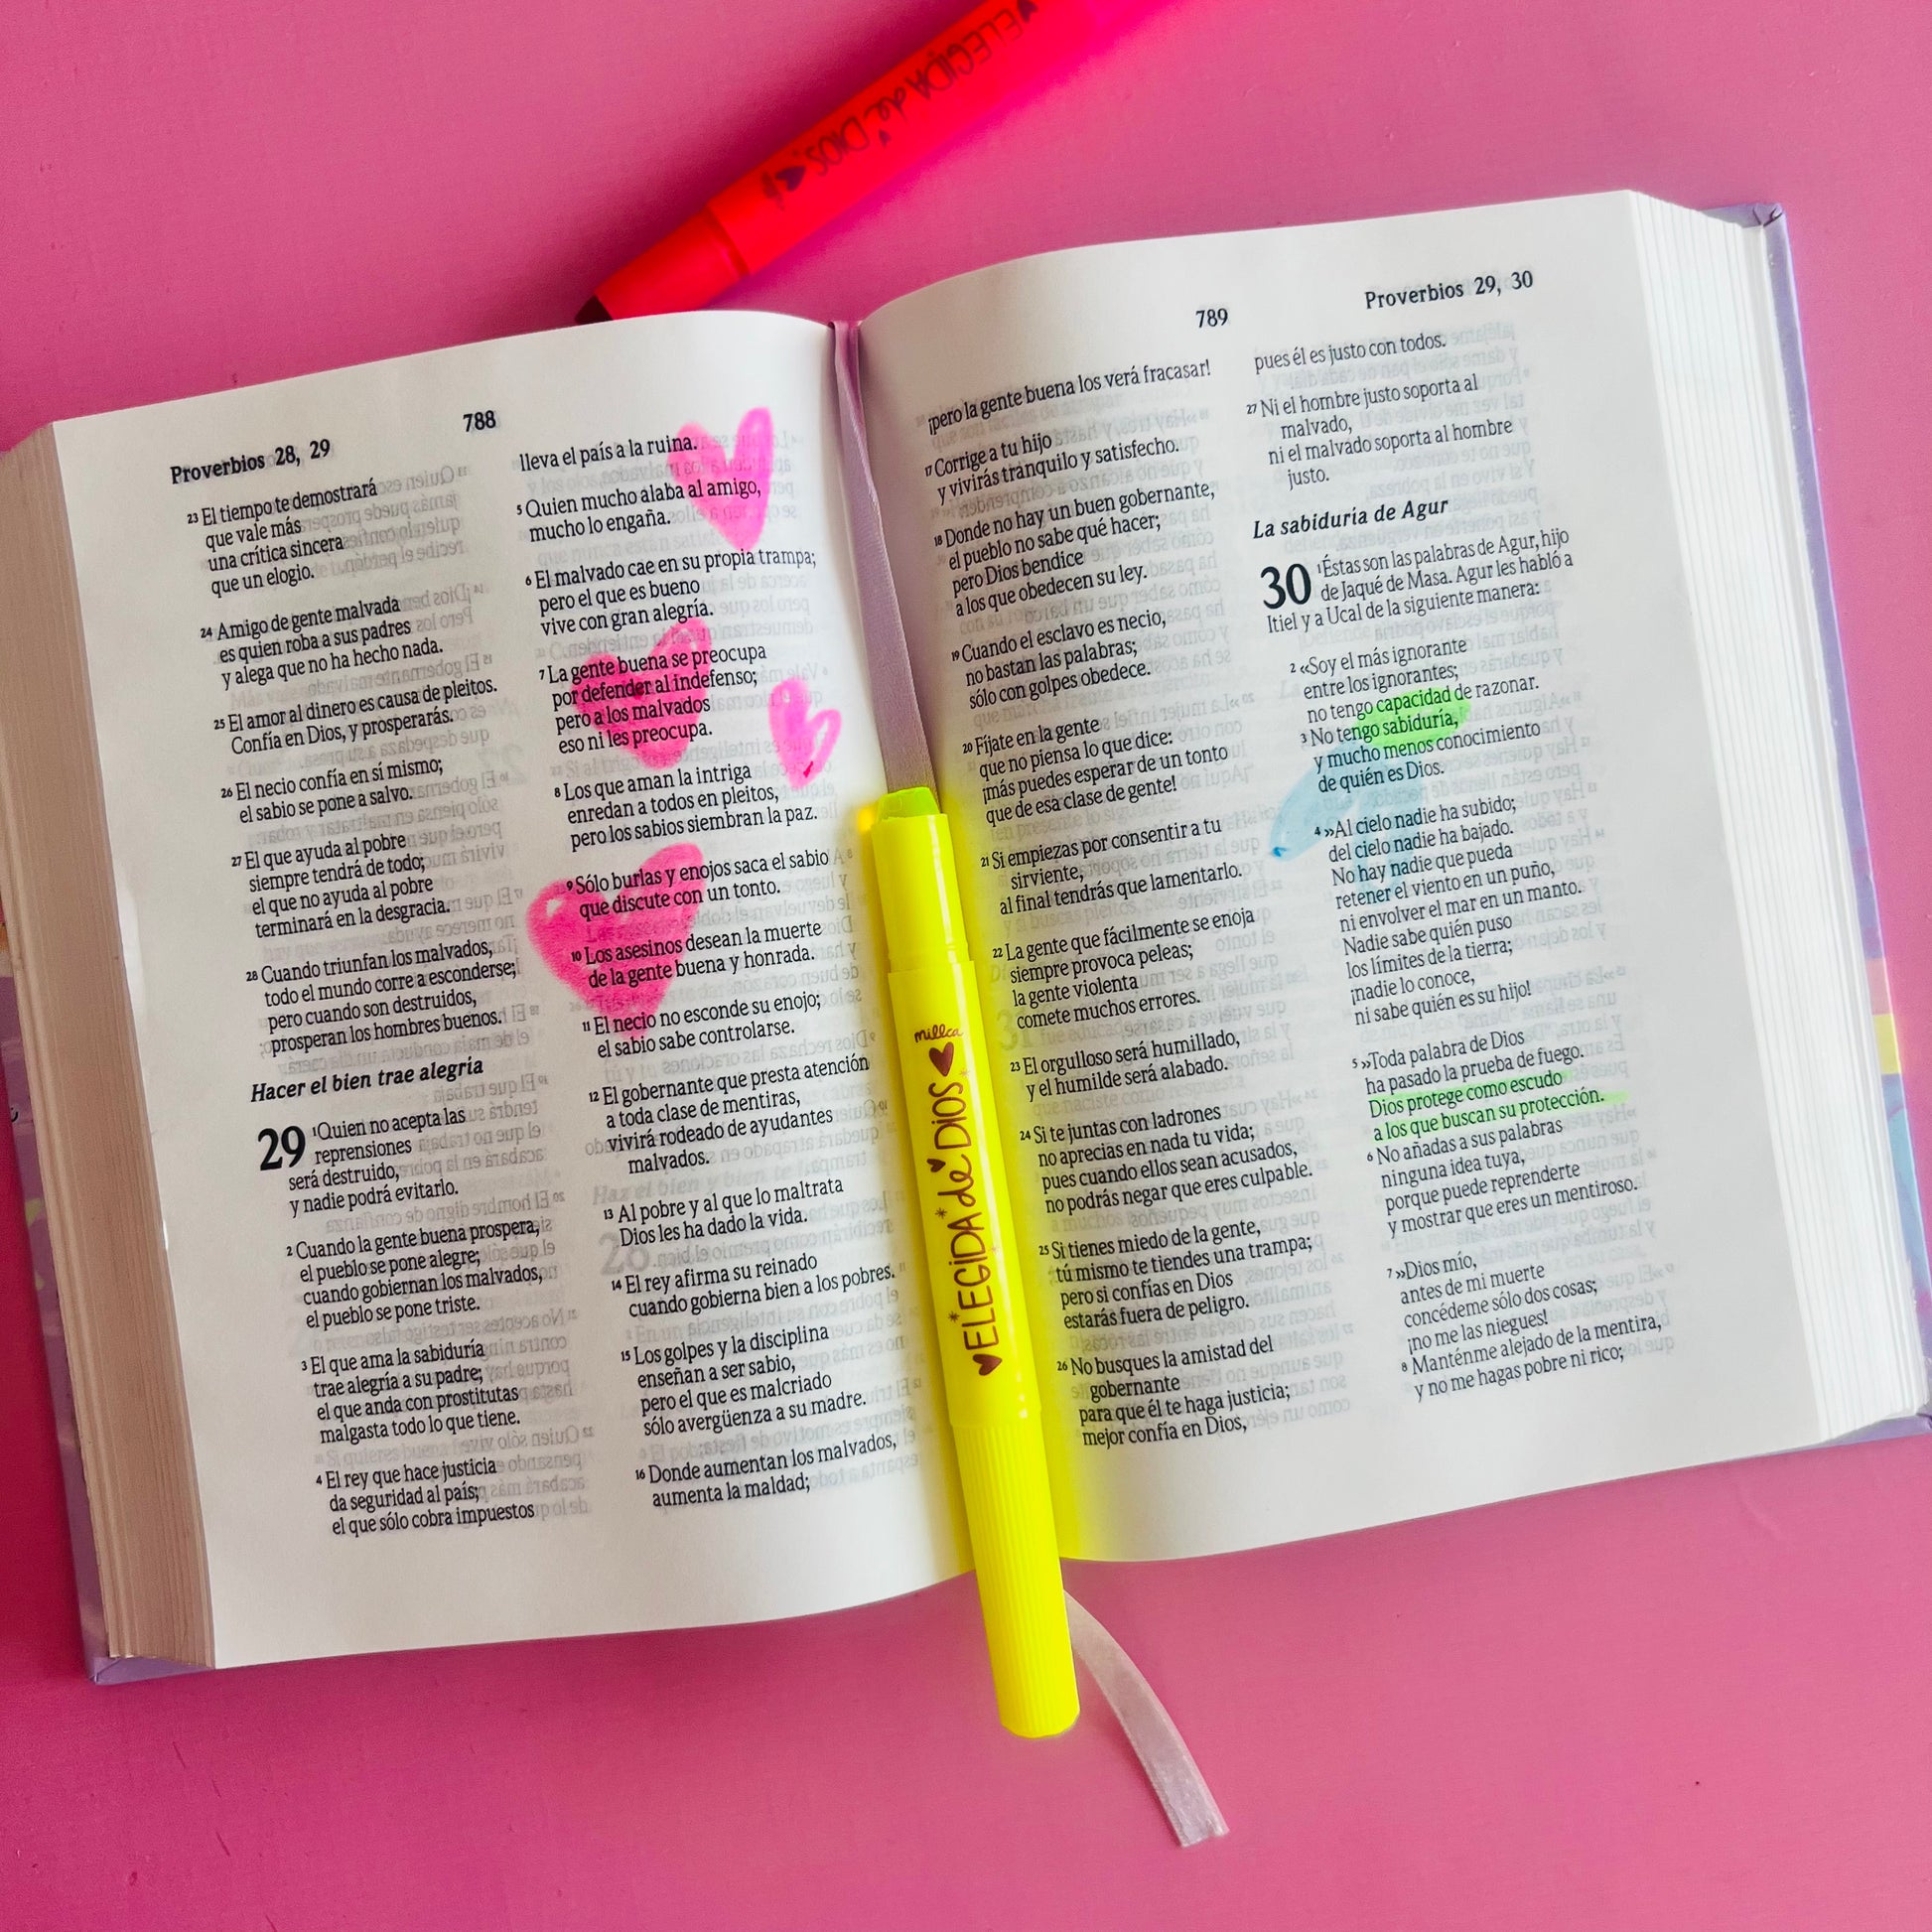 Proverbios 28, 29
788
23 El tiempo te demostrará
que vale más
una crítica sincera
que un elogio.
24 Amigo de gente malvada
es quien roba a sus padres
y alega que no ha hecho nada.
25 El amor al dinero es causa de pleitos.
Confía en Dios, y prosperarás.
26 El necio confía en sí mismo;
el sabio se pone a salvo.
27 El que ayuda al pobre
siempre tendrá de todo;
el que no ayuda al pobre
terminará en la desgracia.
28 Cuando triunfan los malvados,
todo el mundo corre a esconderse;
pero cuando son destruidos,
prosperan los hombres buenos.
Hacer el bien trae alegría
29 1Quien no acepta las
reprensiones
será destruido,
y nadie podrá evitarlo.
2 Cuando la gente buena prospera,
el pueblo se pone alegre;
cuando gobiernan los malvados,
el pueblo se pone triste.
3 El que ama la sabiduría
trae alegría a su padre;
el que anda con prostitutas
malgasta todo lo que tiene.
4 El rey que hace justicia
da seguridad al país;
el que sólo cobra impuestos
lleva el país a la ruina.
5 Quien mucho alaba al amigo,
mucho lo engaña.
6 El malvado cae en su propia trampa;
pero el que es bueno
vive con gran alegría.
7 La gente buena se preocupa
por defender al indefenso;
pero a los malvados
eso ni les preocupa.
8 Los que aman la intriga
enredan a todos en pleitos,
pero los sabios siembran la paz.
9 Sólo burlas y enojos saca el sabio
que discute con un tonto.
10 Los asesinos desean la muerte
de la gente buena y honrada.
11 El necio no esconde su enojo;
el sabio sabe controlarse.
12 El gobernante que presta atención
a toda clase de mentiras,
vivirá rodeado de ayudantes
malvados.
13 Al pobre y al que lo maltrata
Dios les ha dado la vida.
14 El rey afirma su reinado
cuando gobierna bien a los pobres.
15 Los golpes y la disciplina
enseñan a ser sabio,
pero el que es malcriado
sólo avergüenza a su madre.
16 Donde aumentan los malvados,
aumenta la maldad;
789
Proverbios 29, 30
¡pero la gente buena los verá fracasar!
17 Corrige a tu hijo
y vivirás tranquilo y satisfecho.
18 Donde no hay un buen gobernante,
el pueblo no sabe qué hacer;
pero Dios bendice
a los que obedecen su ley.
19 Cuando el esclavo es necio,
no bastan las palabras;
sólo con golpes obedece.
20 Fíjate en la gente
que no piensa lo que dice:
¡más puedes esperar de un tonto
que de esa clase de gente!
21 Si empiezas por consentir a tu
sirviente,
al final tendrás que lamentarlo.
22 La gente que fácilmente se enoja
siempre provoca peleas;
la gente violenta
comete muchos errores.
23 El orgulloso será humillado,
y el humilde será alabado.
24 Si te juntas con ladrones
no aprecias en nada tu vida;
pues cuando ellos sean acusados,
no podrás negar que eres culpable.
25 Si tienes miedo de la gente,
tú mismo te tiendes una trampa;
pero si confías en Dios
estarás fuera de peligro.
26 No busques la amistad del
gobernante
para que él te haga justicia;
mejor confía en Dios,
pues él es justo con todos.
27 Ni el hombre justo soporta al
malvado,
ni el malvado soporta al hombre
justo.
La sabiduría de Agur
30 1Éstas son las palabras de Agur, hijo
de Jaqué de Masa. Agur les habló a
Itiel y a Ucal de la siguiente manera:
2 «Soy el más ignorante
entre los ignorantes;
no tengo capacidad de razonar.
3 No tengo sabiduría,
y mucho menos conocimiento
de quién es Dios.
4 »Al cielo nadie ha subido;
del cielo nadie ha bajado.
No hay nadie que pueda
retener el viento en un puño,
ni envolver el mar en un manto.
Nadie sabe quién puso
los límites de la tierra;
¡nadie lo conoce,
ni sabe quién es su hijo!
5 »Toda palabra de Dios
ha pasado la prueba de fuego.
Dios protege como escudo
a los que buscan su protección.
6 No añadas a sus palabras
ninguna idea tuya,
porque puede reprenderte
y mostrar que eres un mentiroso.
7 »Dios mío,
antes de mi muerte
concédeme sólo dos cosas;
¡no me las niegues!
8 Manténme alejado de la mentira,
y no me hagas pobre ni rico;
millca
ELEGIDA de DIOS
ELEGIDA de DIOS